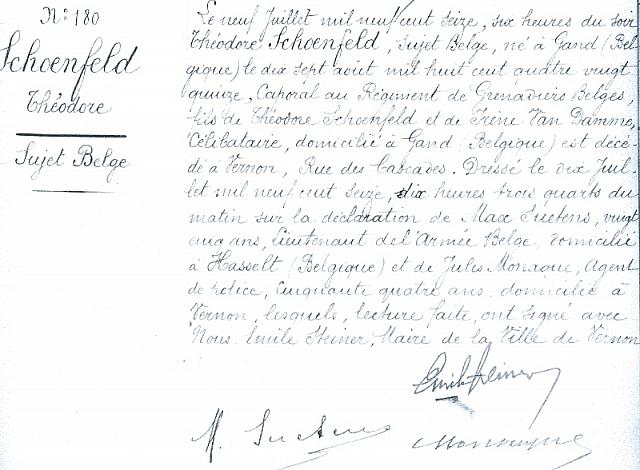 N° 180
Schoenfeld
Théodore
Sujet Belge
Le neuf Juillet mil neuf cent seize, six heures du soir
Théodore Schoenfeld, sujet Belge, né à Gand (Bel
gique) le dix sept août mil huit cent quatre vingt
quinze, Caporal au Régiment de Grenadiers Belges,
fils de Théodore Schoenfeld et de Irène Van Damme,
Célibataire, domicilié à Gand (Belgique) est décé
dé à Vernon, Rue des Cascades. Dressé le dix Juil
let mil neuf cent seize, dix heures trois quarts du
matin sur la déclaration de Max Suetens, vingt
cinq ans, Lieutenant de l'Armée Belge, domicilié
à Hasselt (Belgique) et de Jules Monaque, Agent
de police, Cinquante quatre ans, domicilié à
Vernon, lesquels, lecture faite, ont signé avec
Nous. Emile Steiner, Maire de la Ville de Vernon
Emile Steiner
M. Suetens